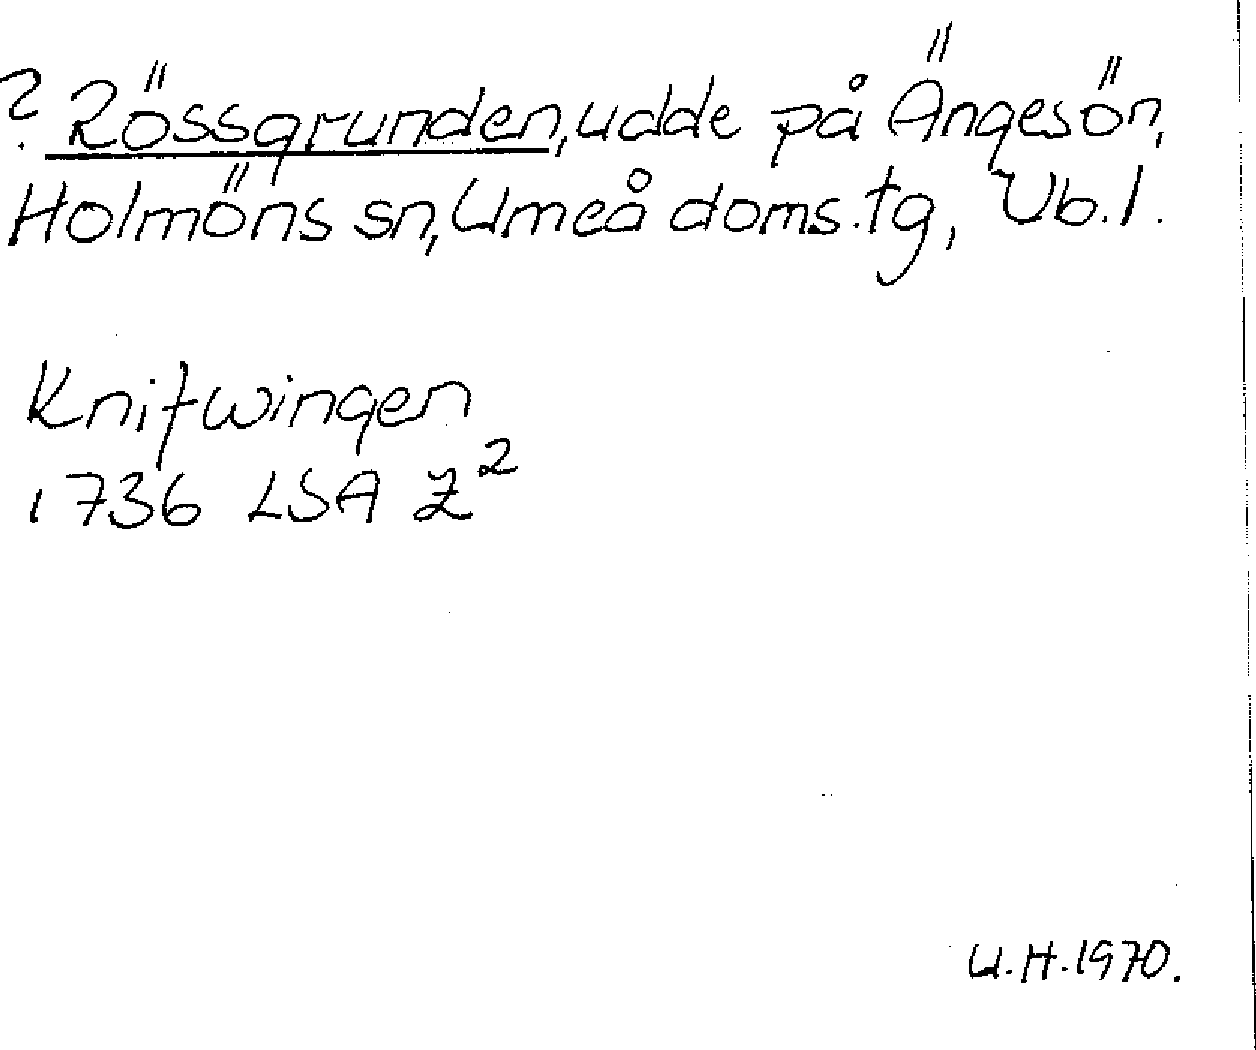 ? Rössgrunden, udde på Ängesön,
Holmöns sn, Umeå doms.tg, Vb.l.
Knifwingen
1736 LSA Z²
U.H.1970.